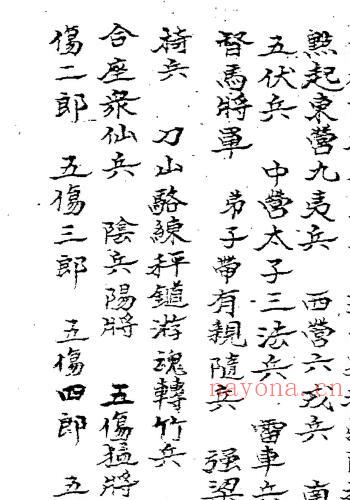 點起東營九夷兵　西營六戎兵　南
五伏兵　中營太子三法兵　雷車兵
督馬將軍　弟子帶有親隨兵　强梁
椅兵　刀山駱練秤鎚游魂轉竹兵
合座衆仙兵　陰兵陽將　五傷猛將
傷二郎　五傷三郎　五傷四郎　五
nayona.cn